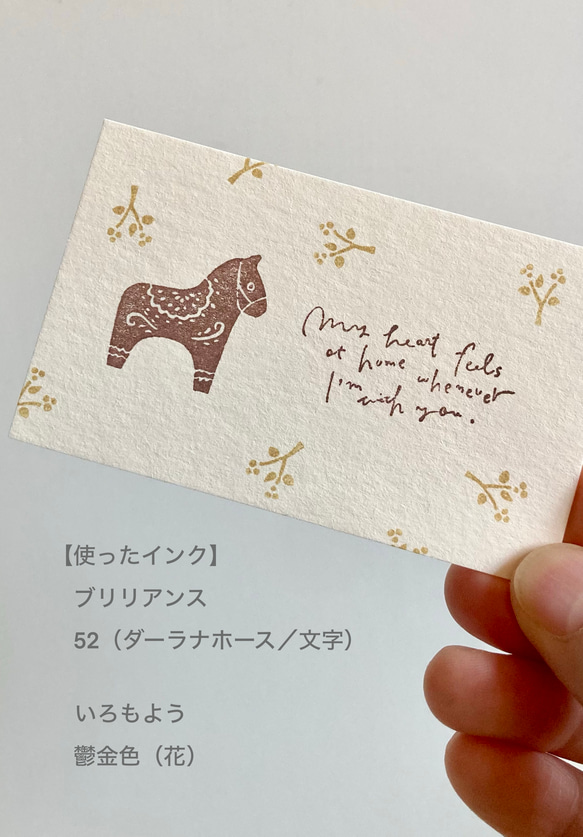 My heart feels
at home whenever
I'm with you.
【使ったインク】
ブリリアンス
52（ダーラナホース／文字）
いろもよう
鬱金色（花）